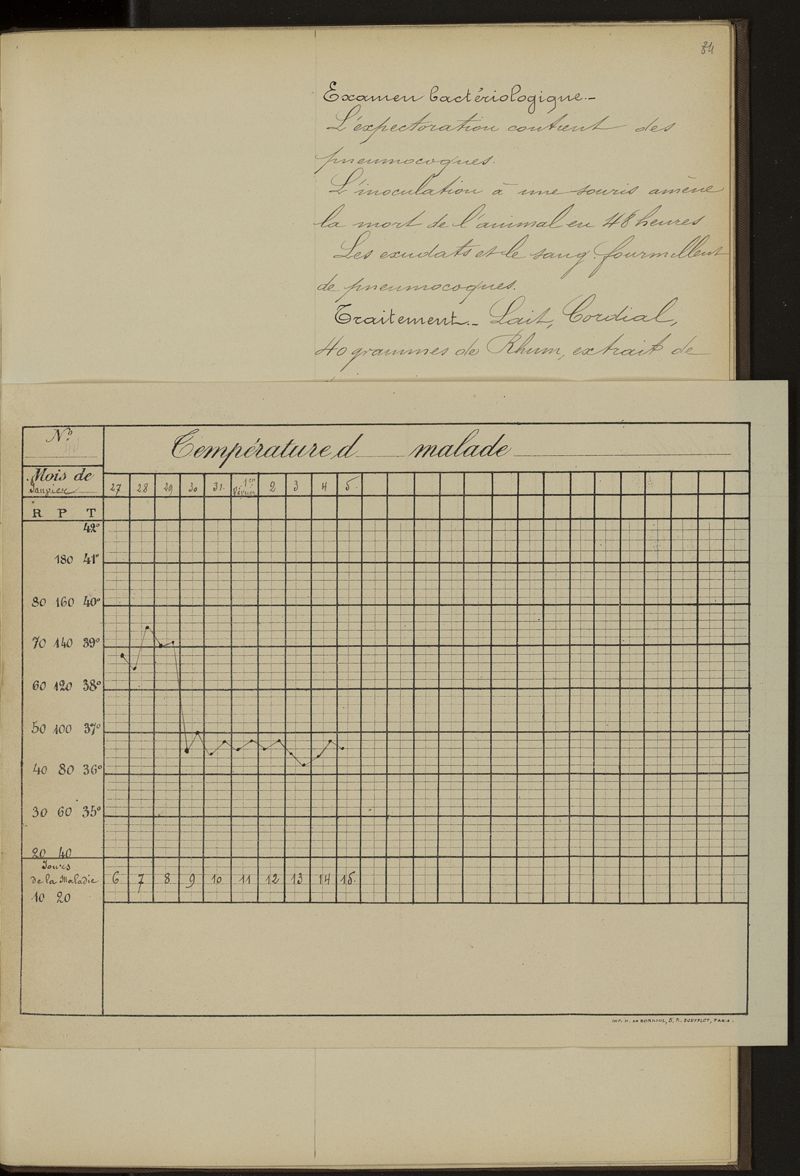 84
Examen bactériologique.-
L'expectoration contient des
pneumocoques.
L'inoculation à une souris amène
la mort de l'animal en 48 heures
Les exudats et le sang fourmillent
de pneumocoques.
Traitement.- Lait, Cordial,
40 grammes de Rhum, extrait de
No
Température d malade
Mois de
Janvier
27 28 29 30 31. 1er Février 2 3 4 5.
R P T
42°
180 41°
80 160 40°
70 140 39°
60 120 38°
50 100 37°
40 80 36°
30 60 35°
20 40
Jours
de la Maladie 6 7 8 9 10 11 12 13 14 15.
10 20